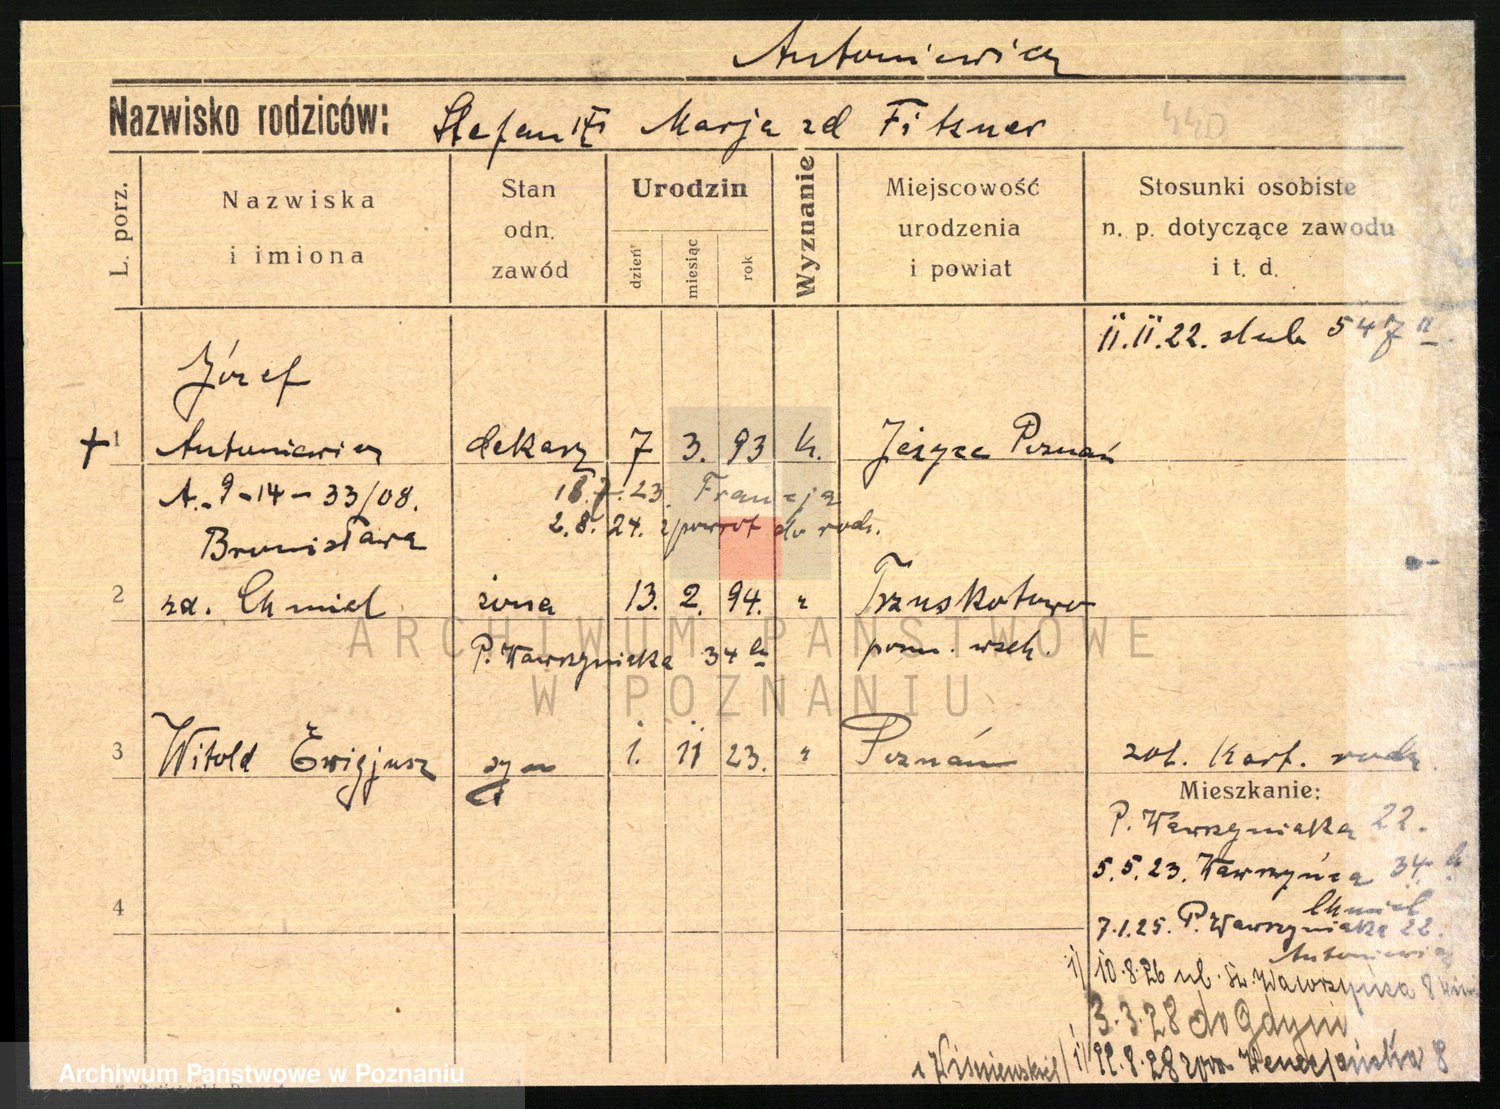 Antoniewicz
Nazwisko rodziców: Stefan Marja zd Fitzner
440
L. porz.
Nazwiska
i imiona
Stan
odn.
zawód
Urodzin
dzień
miesiąc
rok
Wyznanie
Miejscowość
urodzenia
i powiat
Stosunki osobiste
n. p. dotyczące zawodu
i t. d.
11.11.22. ślub 547
Józef
1 Antoniewicz dekarz 7 3. 93 k. Jeżyce Poznań
A.-9-14-33/08. 18.7.23 Francja
2.8.24. powrot do rodz.
Bronisława
2 zd. Chmiel żona 13. 2. 94. " Trzuskotowo
P. Wawrzyniaka 34 pozn. wsch.
3 Witold Ewigjusz syn 1. 11 23. " Poznań zob. Kart. rodz.
Mieszkanie:
P. Wawrzyniaka 22.
5.5.23. Wawrzyńca 34
Chmiel
4
7.1.25. P. Wawrzyniaka 22.
Antoniewicz
1) 10.8.26 ul. Św. Wawrzyńca 8
3.3.28 do Gdyni
1) 22.8.28 Wenecjańska 8
ARCHIWUM PAŃSTWOWE
W POZNANIU
Archiwum Państwowe w Poznaniu